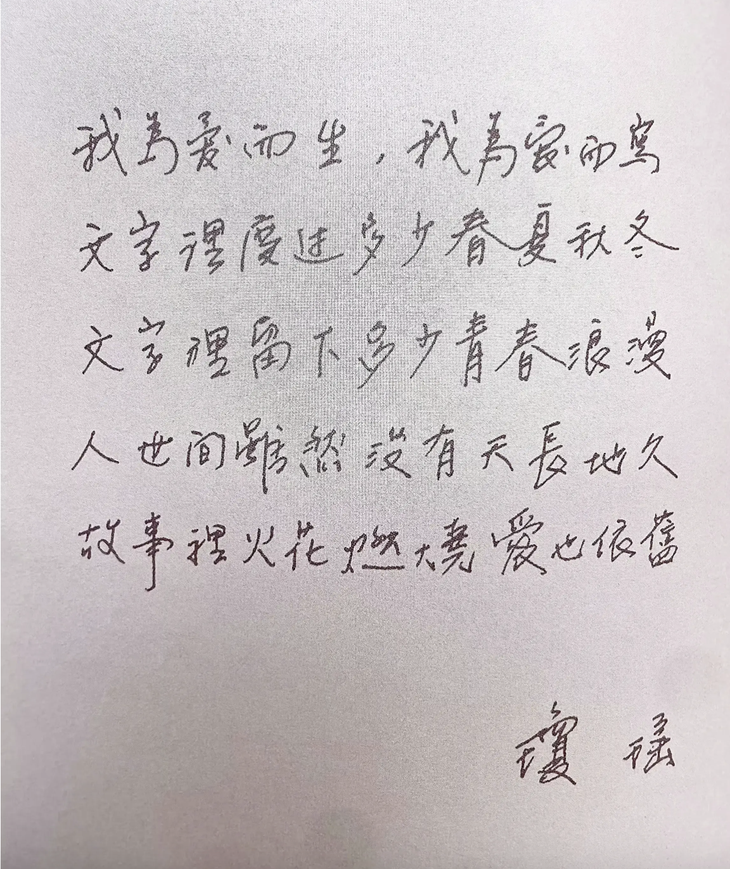 我為愛而生，我為愛而寫
文字裡度过多少春夏秋冬
文字裡留下多少青春浪漫
人世間雖然沒有天長地久
故事裡火花燃燒愛也依舊
瓊瑤